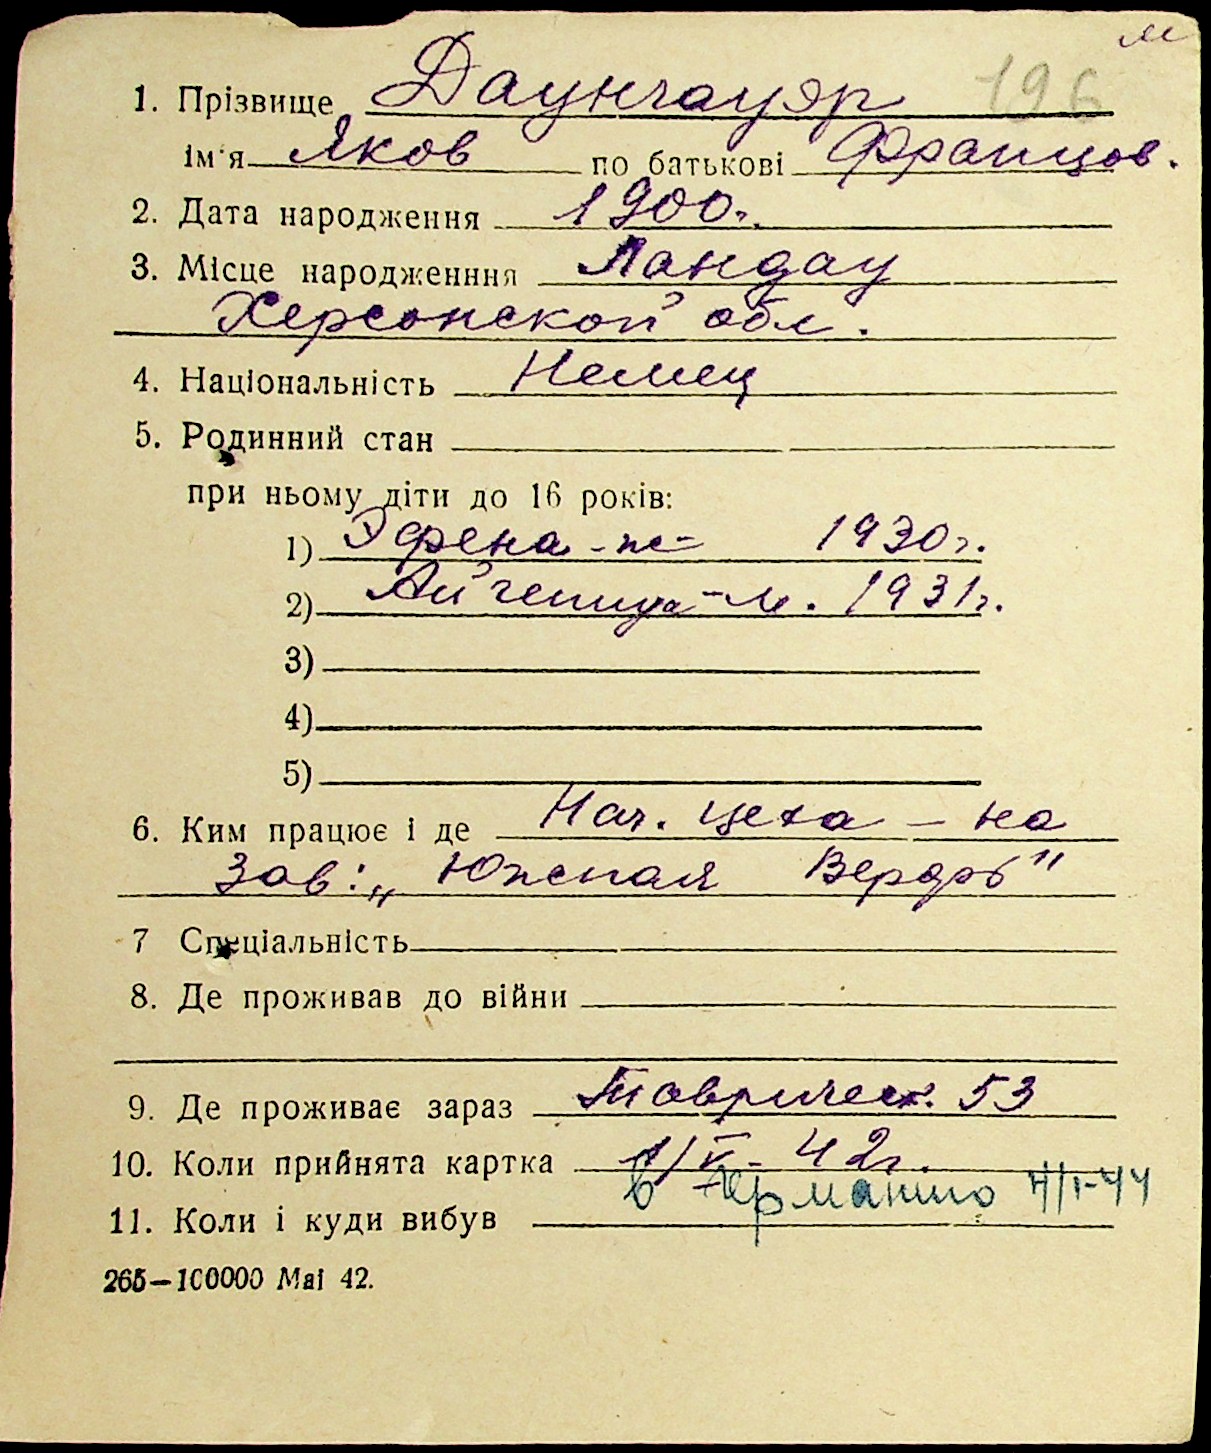 м
196
1. Прізвище Даунгауэр
ім'я Яков по батькові Францов.
2. Дата народження 1900г.
3. Місце народженння Ландау
Херсонской обл.
4. Національність Немец
5. Родинний стан
при ньому діти до 16 років:
1) Эфрена - ж - 1930г.
2) - м. 1931г.
3)
4)
5)
6. Ким працює і де Нач. цеха - на
Зав: „Южная Верфь"
7 Спеціальність
8. Де проживав до війни
9. Де проживає зараз Таврическ. 53
10. Коли прийнята картка 1/V - 42г.
11. Коли і куди вибув в Германию 4/I-44
265—100000 Маі 42.